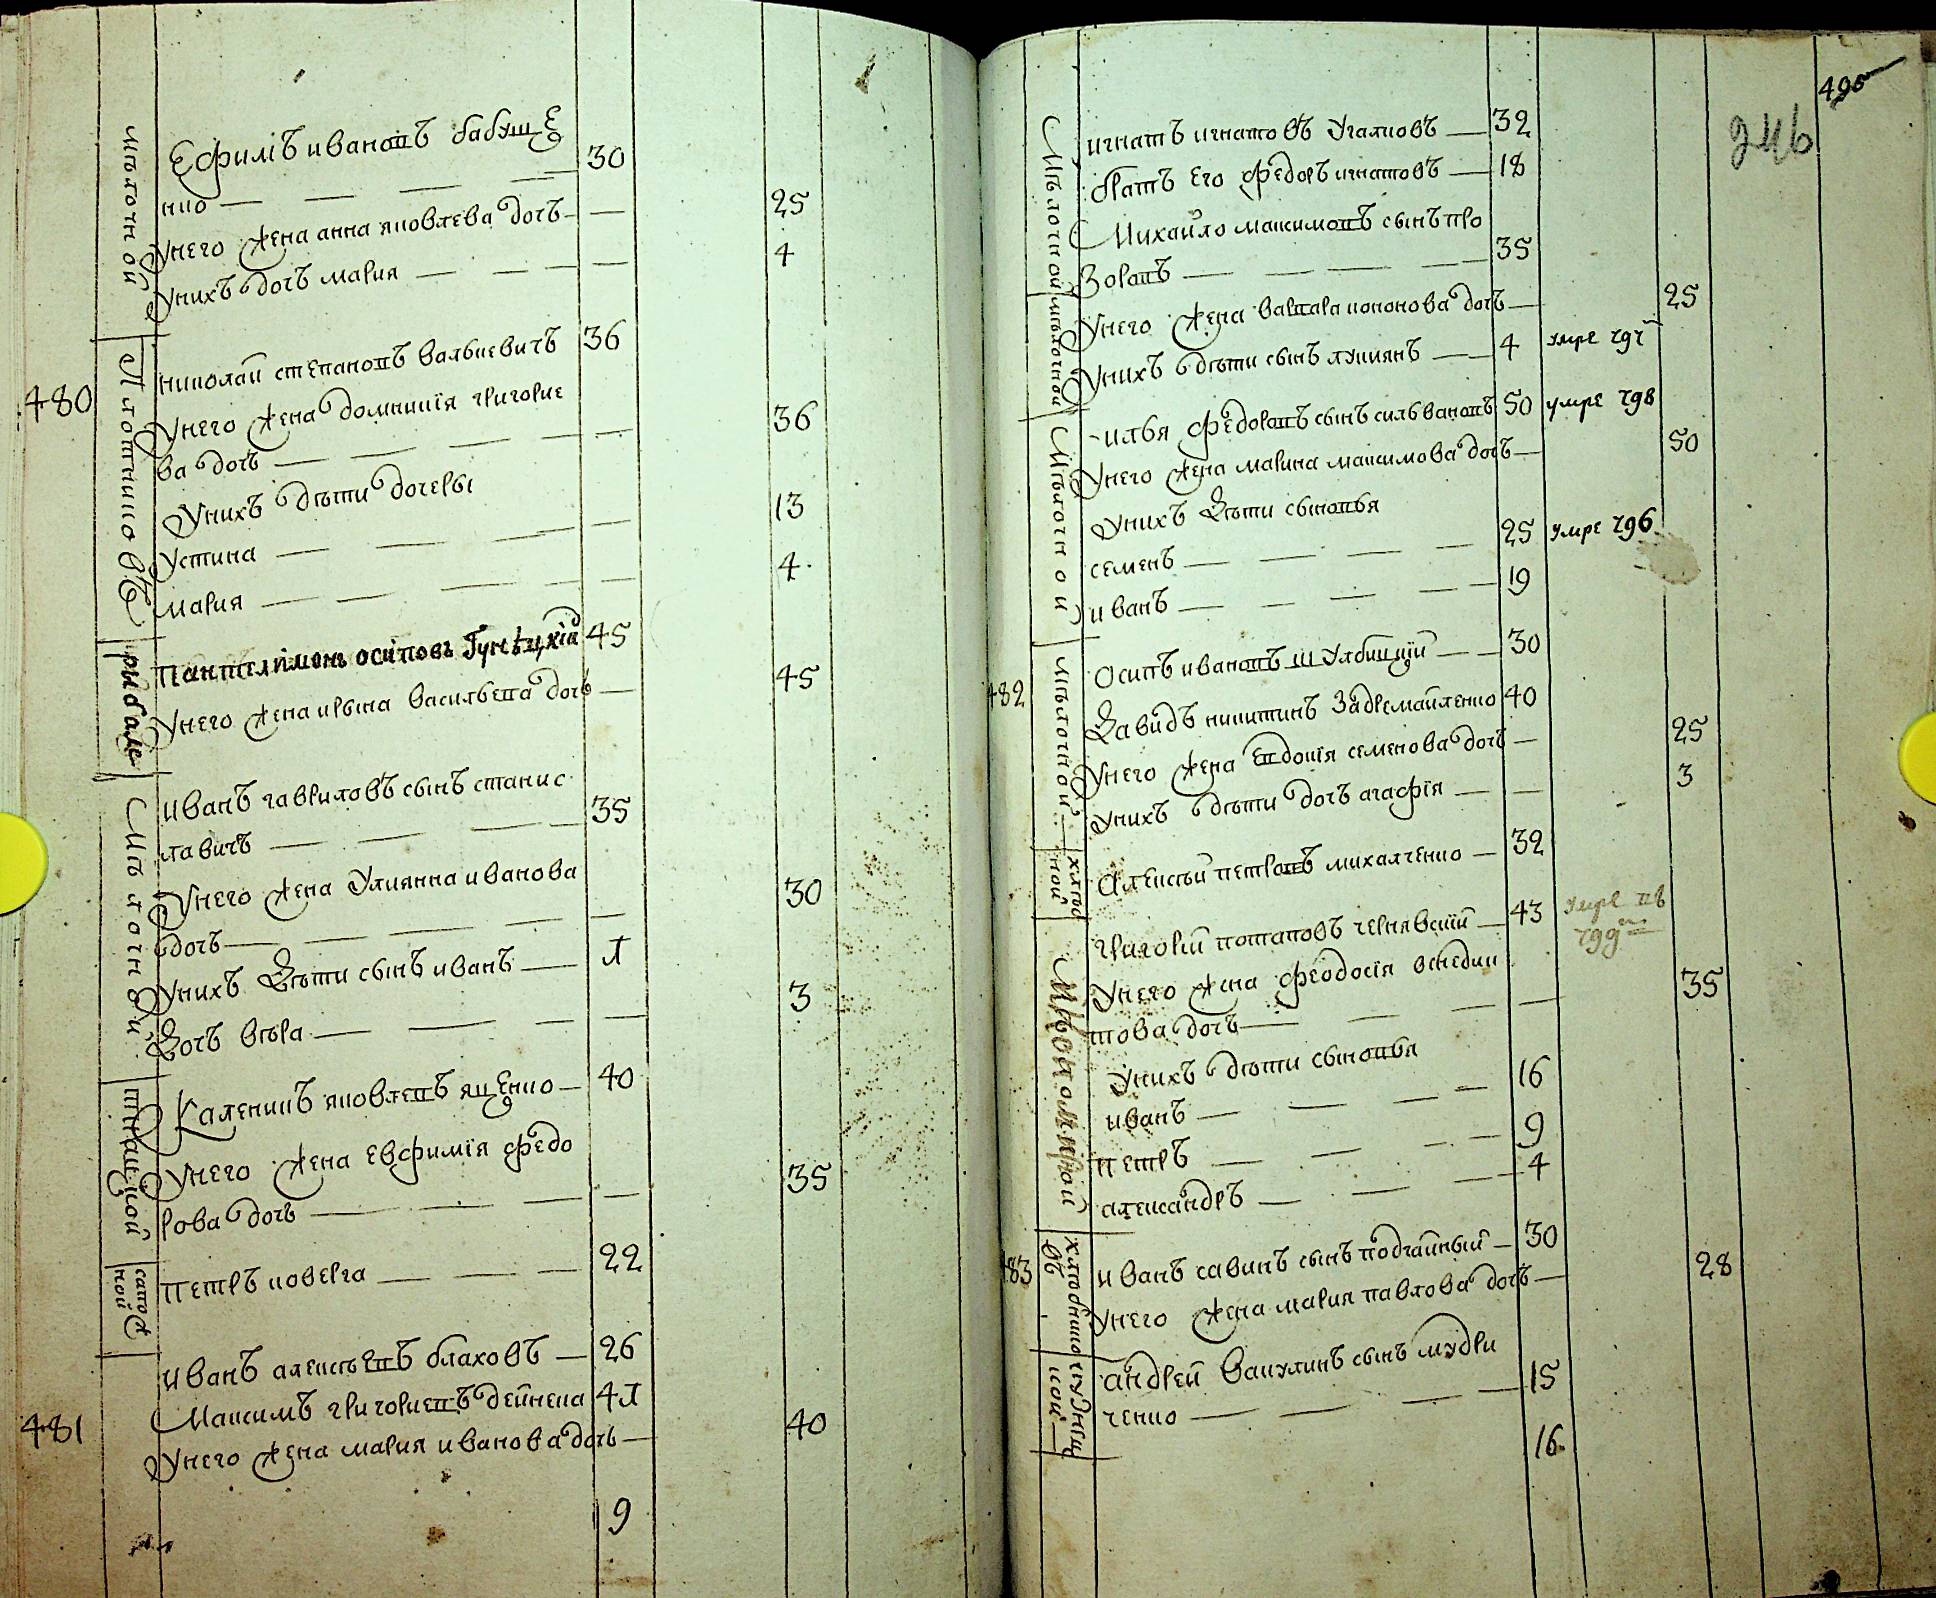 мѣлочной
Ефимъ ивановъ бабуще
нко 30
унего жена анна яковлева дочь 25
унихъ дочь мария 4
480
Плотниковъ
николай степановъ валькевичъ 36
унего жена домникия григорие
ва дочь 36
Унихъ дѣти дочеры
устина 13
мария 4
рыбале
Пантелимонъ осиповъ Гунѣцкій 45
унего жена ирына васильева дочь 45
Мѣлочной
иванъ гавриловъ сынъ станис
лавичъ 35
Унего жена Улиянна иванова
дочь 30
унихъ Дѣти сынъ иванъ 1
Дочь вѣра 3
ткацкой
Каленикъ яковлевъ ященко 40
унего жена евфимїя федо
рова дочь 35
сапожной
петръ коверга 22
иванъ алексѣевъ блаховъ 26
481
Максимъ григориевъ дейнека 41
унего жена мария иванова дочь 40
9
495
246
Мѣлочной
игнатъ игнатовъ Угалковъ 32
братъ его федоръ игнатовъ 18
мѣлочной
Михайло максимовъ сынъ про
зоровъ 35
Унего жена варвара кононова дочь 25
унихъ дѣти сынъ лукиянъ 4 умре 797
Мѣлочной
илья федоровъ сынъ сильвановъ 50 умре 798
унего жена марина максимова дочь 50
унихъ Дѣти сыновья
семенъ 25 умре 796
иванъ 19
482
мѣлочной
Осипъ ивановъ шулбицкїй 30
Давидъ никитинъ Задремайленко 40
унего жена евдокїя семенова дочь 25
унихъ дѣти дочь агафїя 3
хлѣбной
Алексѣй петровъ михалченко 32
григорїй потаповъ чернявскїй 43 умре въ
799
Унего жена феодосїя
това дочь 35
Унихъ дѣти сыновья
иванъ 16
петръ 9
александръ 4
483
хлѣбниковъ
иванъ савинъ сынъ подчайный 30
унего жена мария павлова дочь 28
кузнецкой
андрей вакулинъ сынъ мудри
ченко 15
16